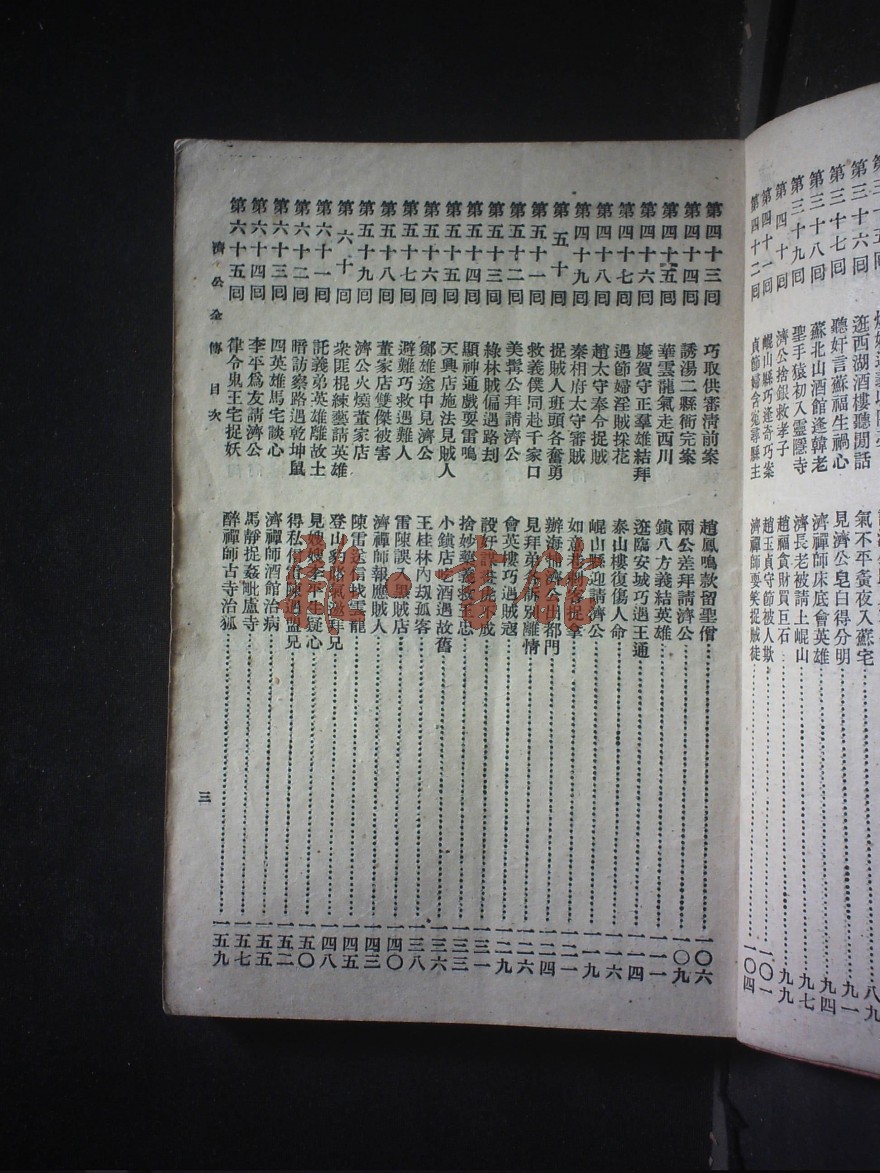 第三十七回 聽奸言蘇福生禍心 見濟公皂白得分明 九一
第三十八回 蘇北山酒館逢韓老 濟禪師床底會英雄 九四
第三十九回 聖手猿初入靈隱寺 濟長老被請上崐山 九七
第四十回 濟公捨銀救孝子 趙福貪財買巨石 九九
第四十一回 崐山縣巧逢奇巧案 趙玉貞守節被人欺 一〇一
第四十二回 貞節婦含冤尋縣主 濟禪師耍笑捉賊徒 一〇四
第四十三囘 巧取供審清前案 趙鳳鳴款留聖僧 一〇六
第四十四囘 誘湯二縣衙完案 兩公差拜請濟公 一〇九
第四十五囘 華雲龍氣走西川 鎮八方義結英雄 一一一
第四十六囘 慶賀守正羣雄結拜 逛臨安城巧遇王通 一一四
第四十七囘 遇節婦淫賊採花 泰山樓復傷人命 一一六
第四十八囘 趙太守奉令捉賊 崐山縣迎請濟公 一一九
第四十九囘 秦相府太守審賊 如意巷刺客捉拿 一二一
第五十囘 捉賊人班頭各奮勇 辦海捕濟公出都門 一二四
第五十一囘 救義僕同赴千家口 見拜弟各訴別離情 一二六
第五十二囘 美髯公拜請濟公 會英樓巧遇賊寇 一二九
第五十三囘 綠林賊偏遇路刦 設奸計畫虎不成 一三一
第五十四囘 顯神通戲耍雷鳴 捨妙藥義救王忠 一三三
第五十五囘 天興店施法見賊人 小鎮店吃酒遇故舊 一三六
第五十六囘 鄭雄途中見濟公 王桂林內刼孤客 一三八
第五十七囘 避難巧救遇難人 雷陳誤入黑賊店 一四〇
第五十八囘 董家店雙傑被害 濟禪師報應賊人 一四三
第五十九囘 濟公火燒董家店 陳雷送信找雲龍 一四五
第六十囘 衆匪棍練藝請英雄 登山豹賭氣邀拜兄 一四八
第六十一囘 託義弟英雄離故土 見嫂嫂李平生疑心 一五〇
第六十二囘 暗訪察路遇乾坤鼠 得私信雷陳遇盟兄 一五二
第六十三囘 四英雄馬宅談心 濟禪師酒館治病 一五五
第六十四囘 李平爲友請濟公 馬靜捉姦毗盧寺 一五七
第六十五囘 律令鬼王宅捉妖 醉禪師古寺治狐 一五九
濟公全傳 目次
三